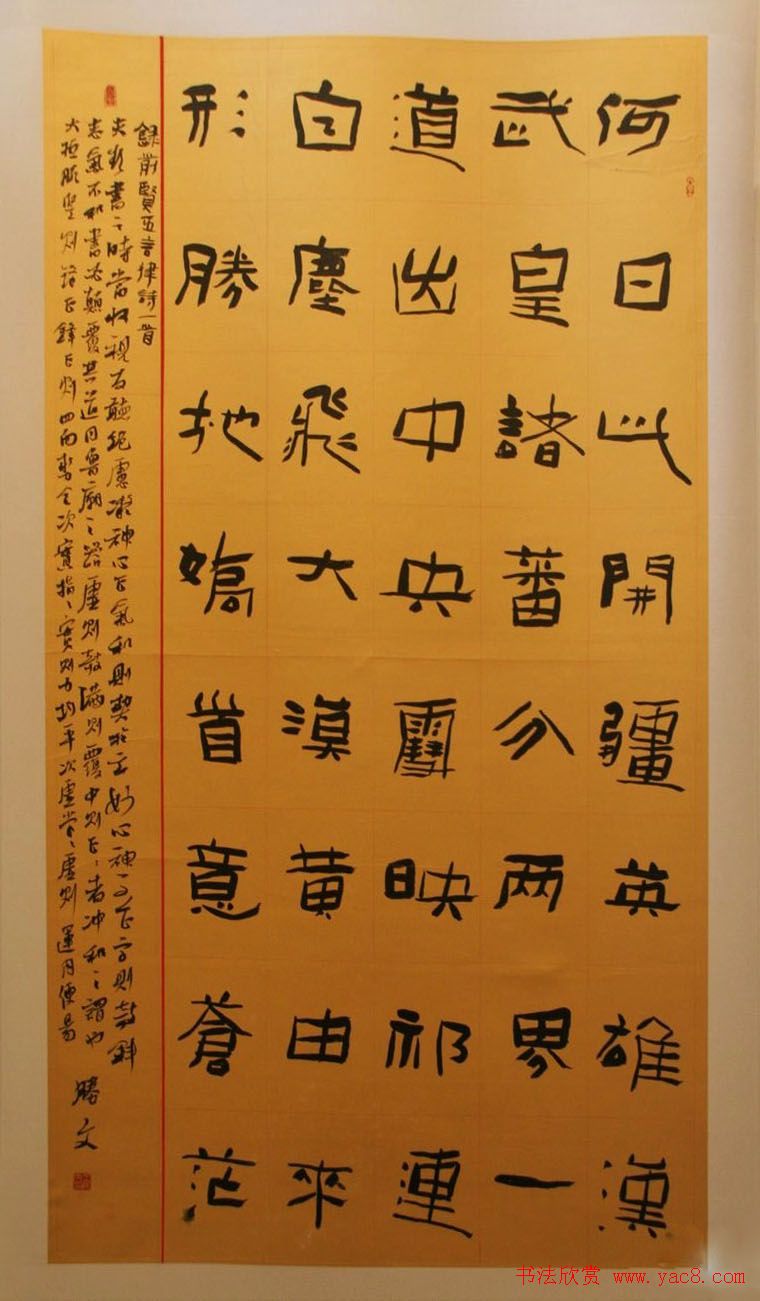 何日此開疆英雄漢
武皇諸蕃分两界一
道出中央雪映祁連
白塵飛大漠黃由來
形勝地嬌首意蒼茫
錄前賢五言律詩一首
夫欲書之時當收視反聽絕慮凝神心正氣和則契於玄妙心神不正字則欹斜
志氣不和書必顛覆其道同魯廟之器虛則欹滿則覆中則正〻者沖和之謂也
大抵腕豎則鋒正鋒正則四面勢全次實指〻實則力均平次虛掌〻虛則運用便易
勝文
书法欣赏 www.yac8.com